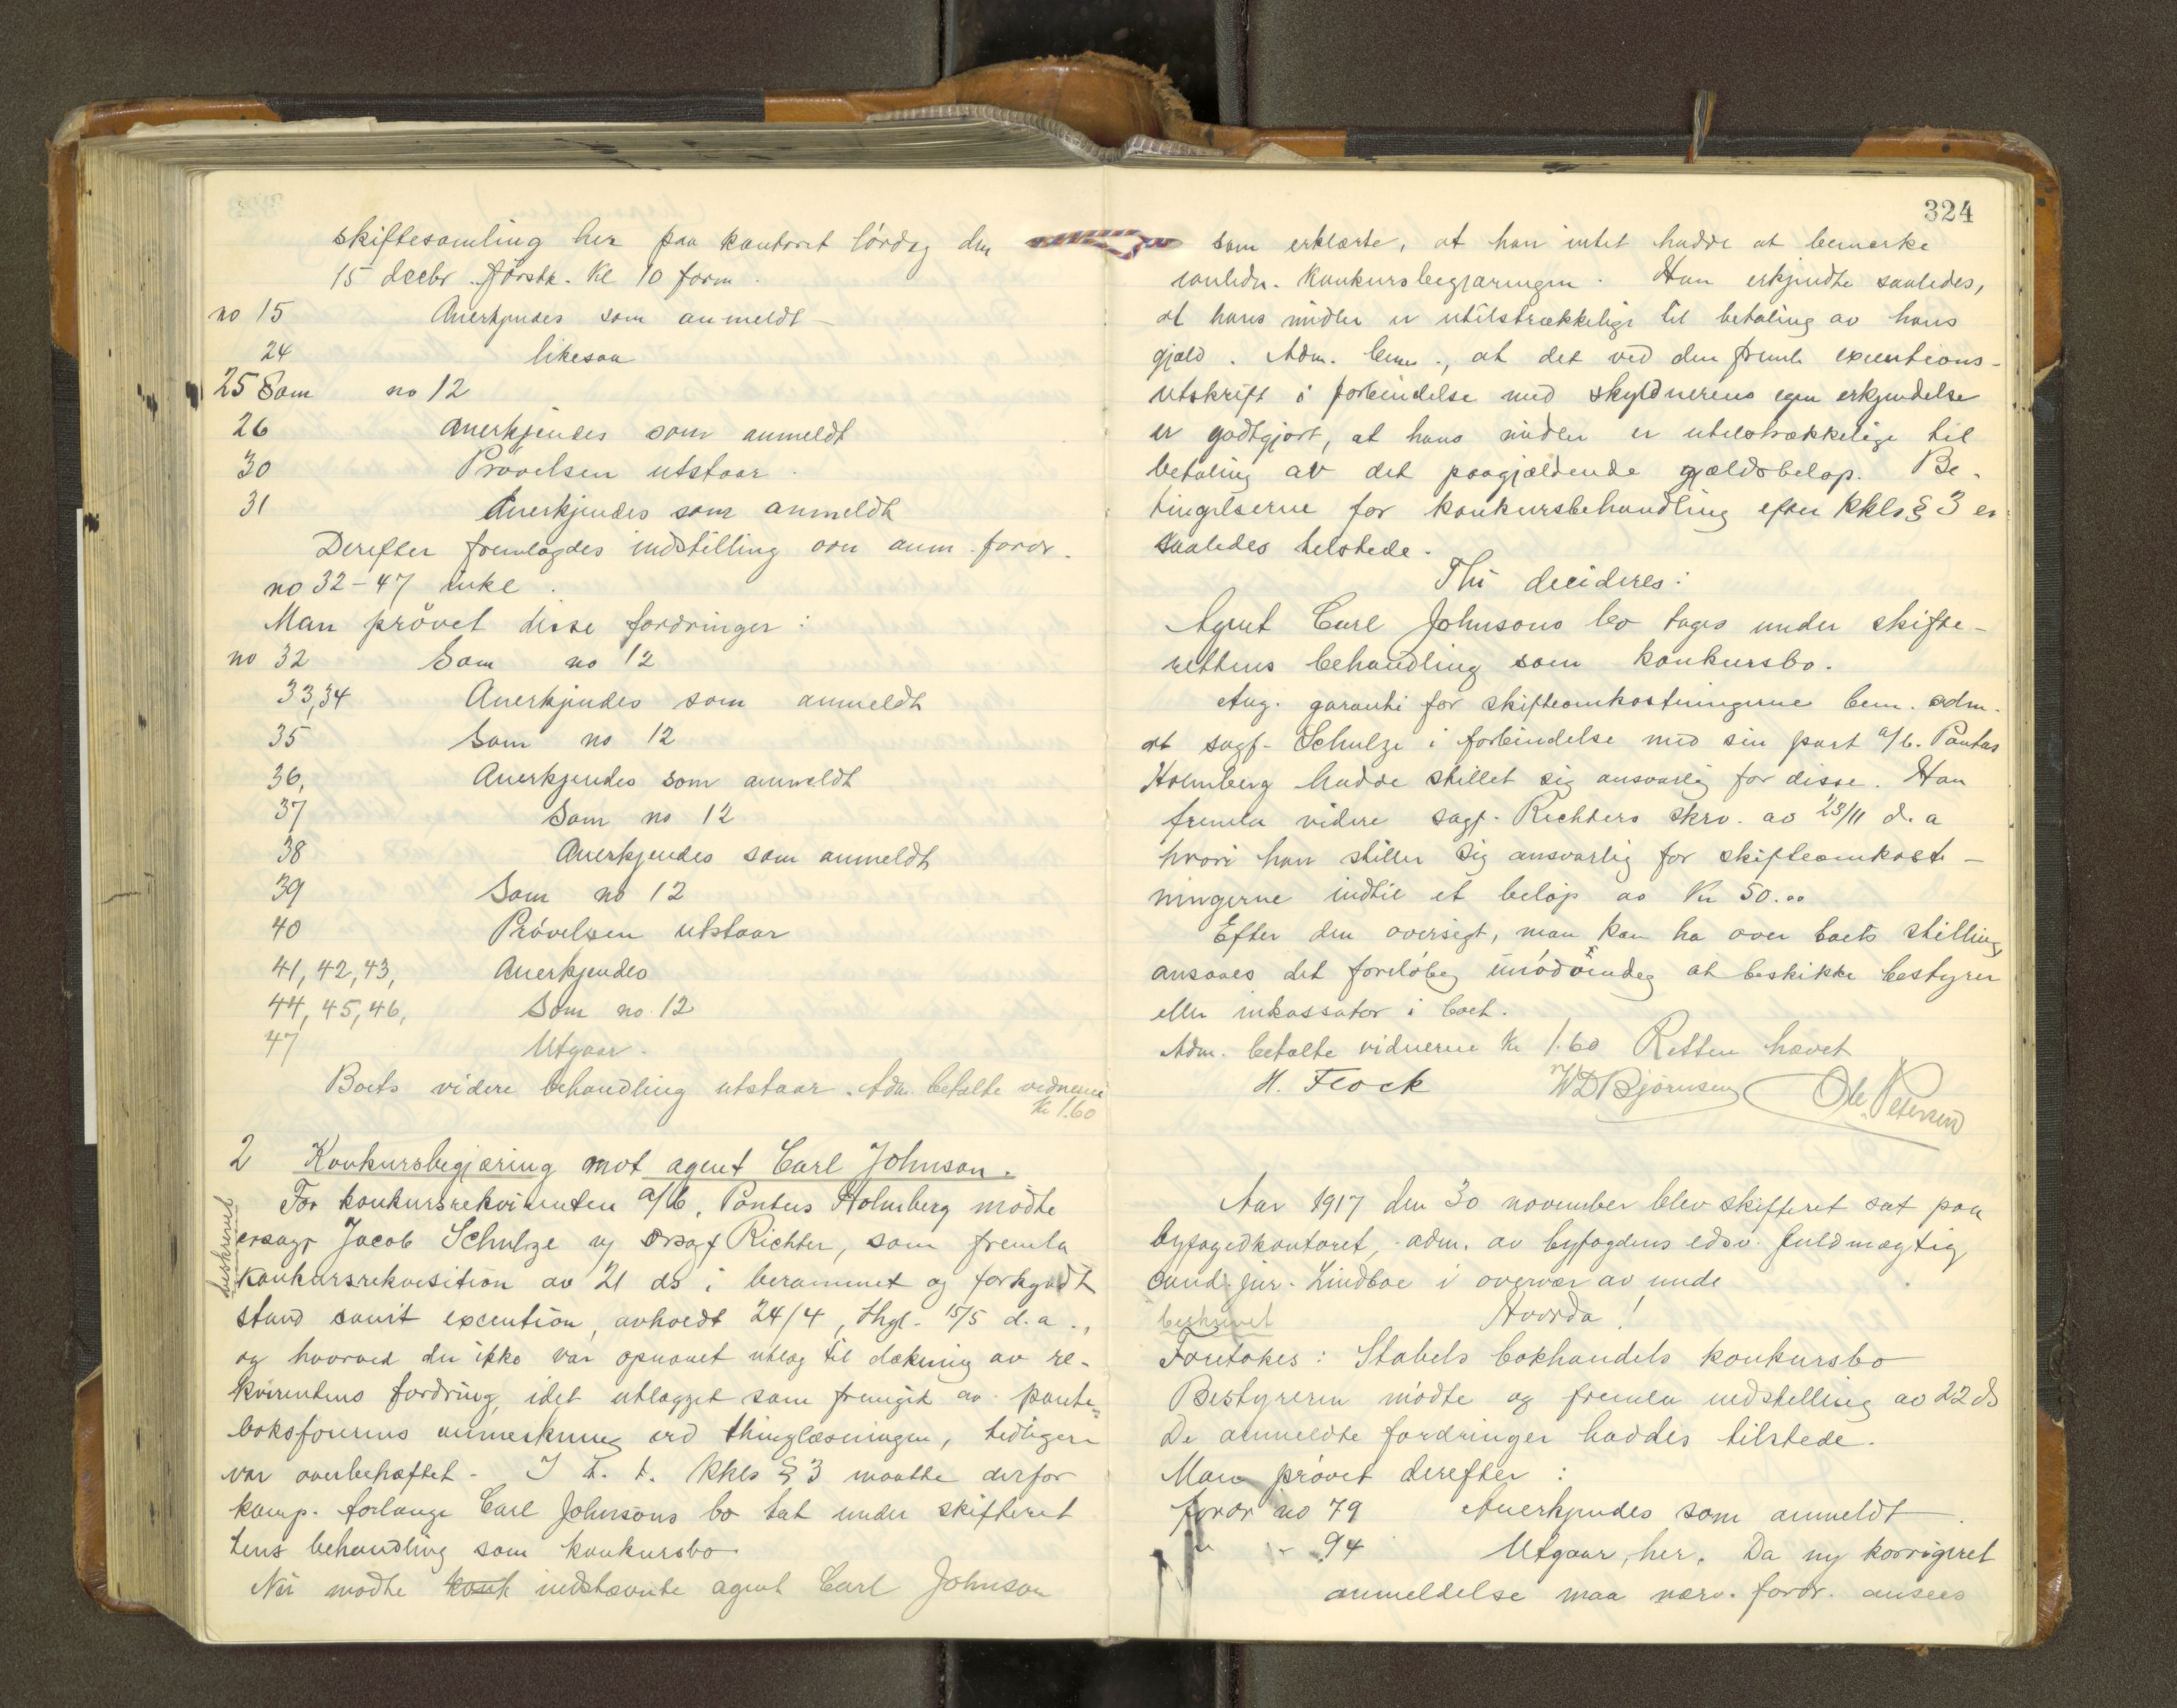 skiftesamling her paa kontoret lördag den
15 decbr. förstk. Kl 10 form.
no 15 Anerkjendes som anmeldt
24 likesaa
25 Som no 12
26 Anerkjendes som anmeldt
30 Prövelsen utstaar.
31 Anerkjendes som anmeldt
Derefter fremlagdes indstilling om anm. fordr.
no 32-47 inkl.
Man prövet disse fordringer:
no 32 Som no 12
33,34 Anerkjendes som anmeldt
35 Som no 12
36, Anerkjendes som anmeldt
37 Som no 12
38 Anerkjendes som anmeldt
39 Som no 12
40 Prövelsen utstaar
41, 42, 43, Anerkjendes
44, 45, 46, Som no 12
47 Utgaar.
Boets videre behandling utstaar. Adm. betalte vidnerne
Kr 1.60
2 Konkursbegjæring mot agent Carl Johnson.
For konkursrekvirenten a/b. Pontus Holmberg mödte
Jacob Schulze Richter, som fremla
beskrevet
konkursrekvisition av 21 ds i berammet og forkyndt
stand samt execution, avholdt 24/4, thgl. 15/5 d.a.,
og hvorved der ikke var opnaaet utlæg til dækning av re-
kvirentens fordring, idet utlægget som fremgik av pante-
boksförerens anmerkning ved thinglæsningen, tidligere
var overbehæftet. I h. t. Kkls § 3 maatte derfor
komp. forlange Carl Johnsons bo tat under skifteret
tens behandling som konkursbo
Nu mödte indstævnte agent Carl Johnson
324
som erklærte, at han intet hadde at bemerke
ianledn. konkursbegjæringen. Han erkjendte saaledes,
at hans midler er utilstrækkelige til betaling av hans
gjæld. Adm. bem., at det ved den fremla executions-
utskrift i forbindelse med skyldnerens egen erkjendelse
er godtgjort, at hans midler er utilstrækkelige til
betaling av det paagjældende gjældsbelöp. Be-
tingelserne for konkursbehandling efter Kkls § 3 er
saaledes tilstede.
Thi decideres:
Agent Carl Johnsons bo tages under skifte-
rettens behandling som konkursbo.
Ang. garanti for skifteomkostningerne bem. adm.
at sagf. Schulze i forbindelse med sin part a/b. Pontus
Holmberg hadde stillet sig ansvarlig for disse. Han
fremla videre sagf. Richters skrv. av 23/11 d. a
hvori han stiller sig ansvarlig for skifteomkost-
ningerne indtil et belöp av Kr 50.00
Efter den oversigt, man kan ha over boets stilling,
ansaaes det forelöbig unödvendig at beskikke bestyrer
eller inkassator i boet.
Adm. betalte vidnerne Kr 1.60 Retten hævet
H. Flock WD Bjørnsen Ole Petersen
Aar 1917 den 30 november blev skifteret sat paa
byfogedkontoret, adm. av byfogdens edsv. fuldmægtig
cand. jur. Lindboe i overvær av unde
beskrevet Hvorda!
Foretokes: Stabels bokhandels konkursbo
Bestyreren mödte og fremla indstilling av 22 ds
De anmeldte fordringer haddes tilstede.
Man prövet derefter:
fordr no 79 Anerkjendes som anmeldt.
" " 94 Utgaar, her. Da ny korrigeret
anmeldelse maa nærv. fordr. ansees